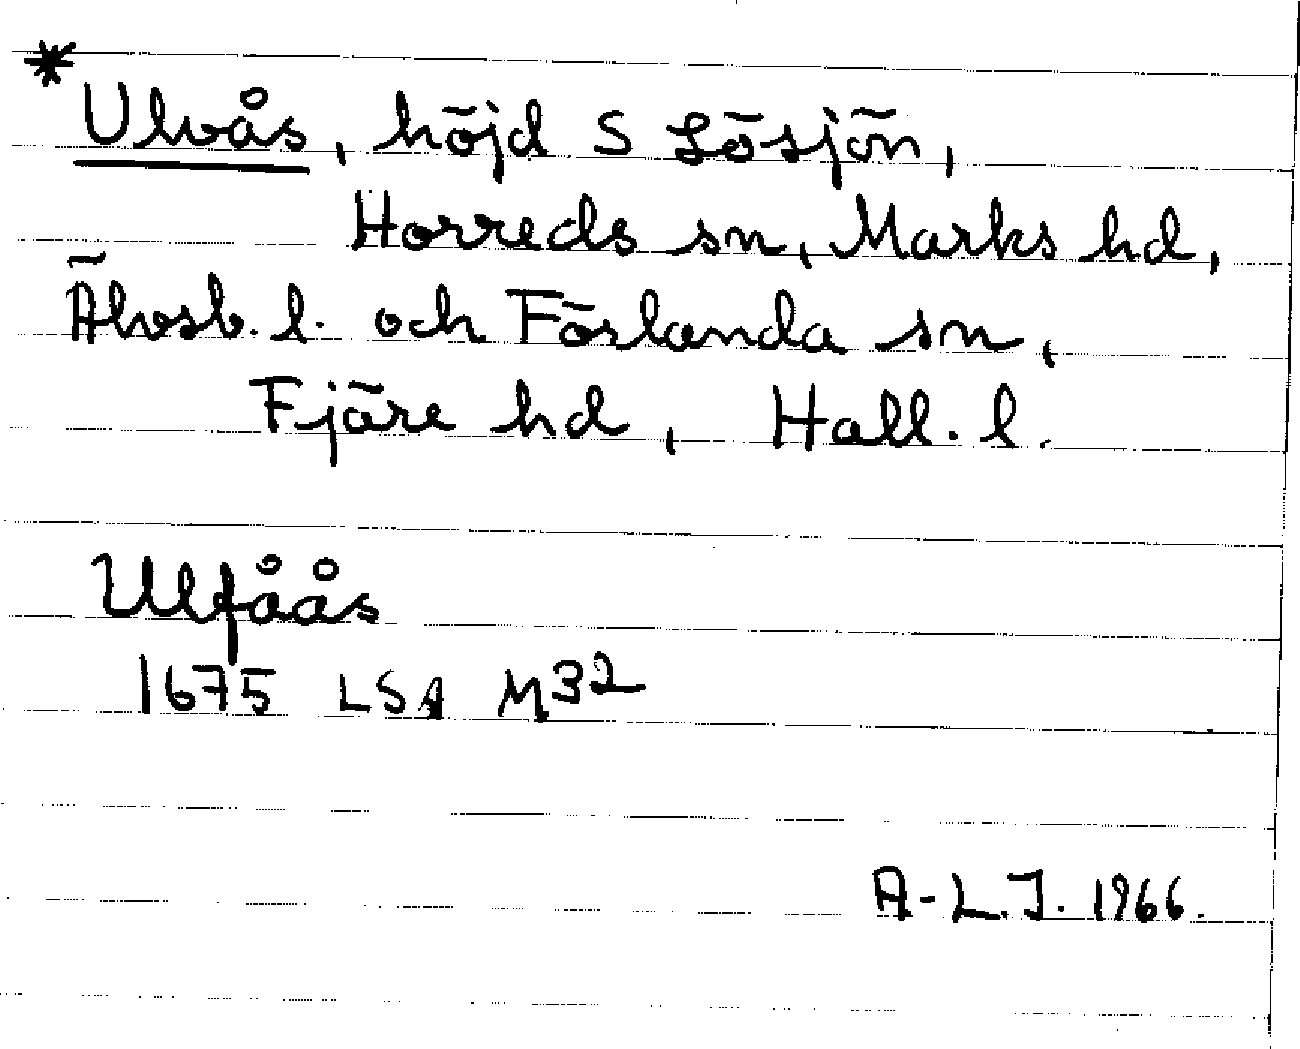 *Ulvås, höjd S Lösjön,
Horreds sn, Marks hd,
Älvsb. l. och Förlanda sn,
Fjäre hd, Hall. l.
Ulfåås
1675 LSA M32
A-L.J. 1966.